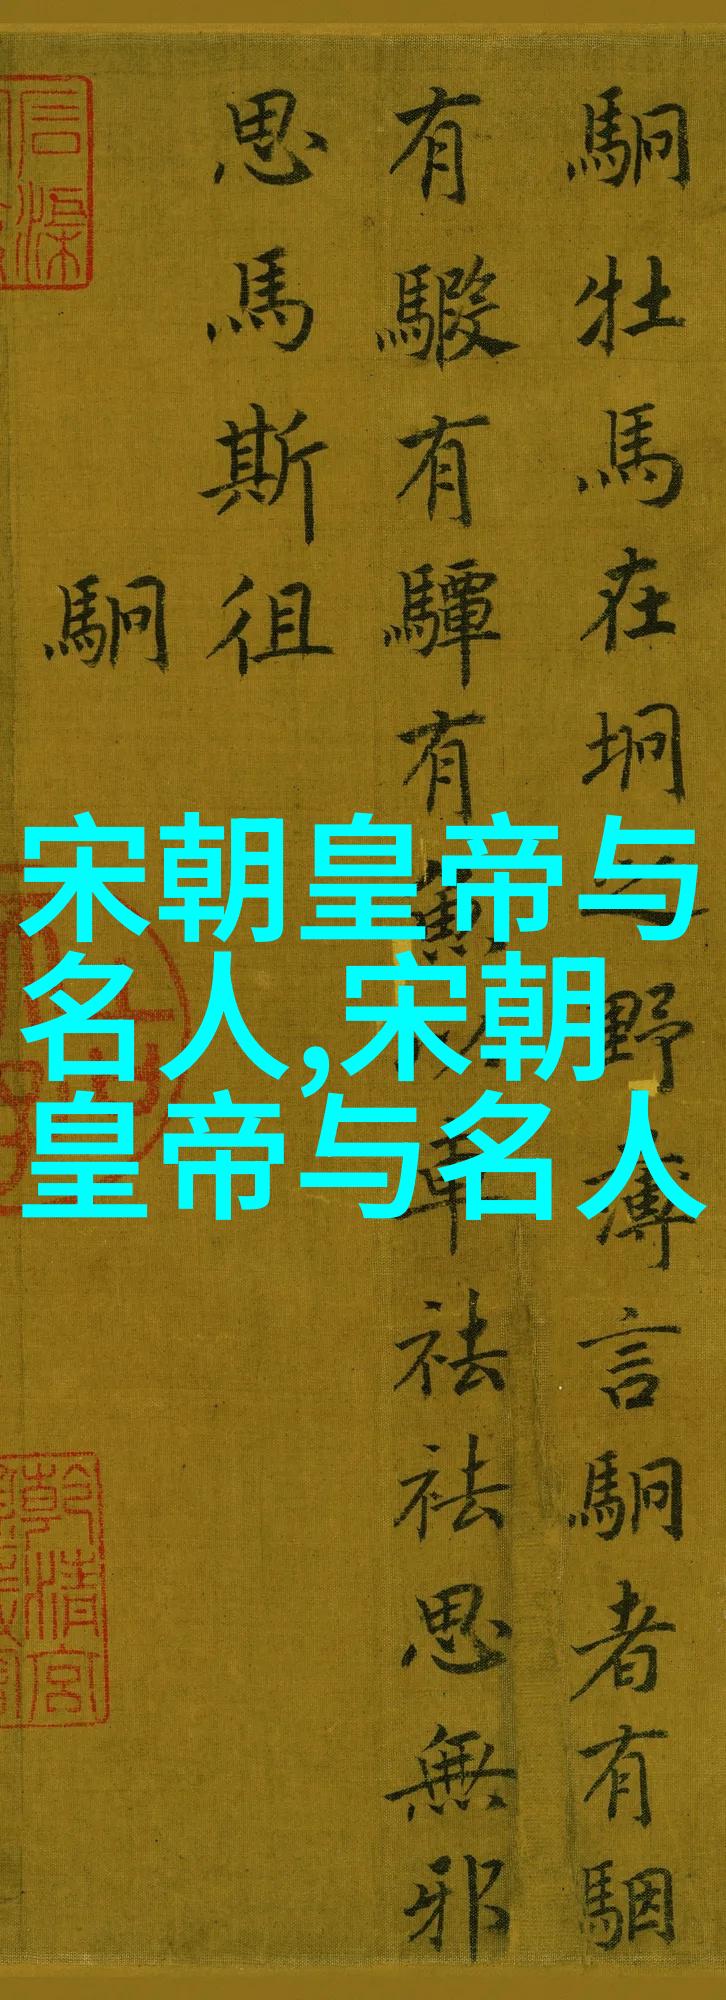 駉牡馬在坰之野薄言駉者有駰
有騢有驔有魚以車祛祛思無邪
思馬斯徂
駉
宋朝皇帝与
名人,宋朝
皇帝与名人
乾清宮